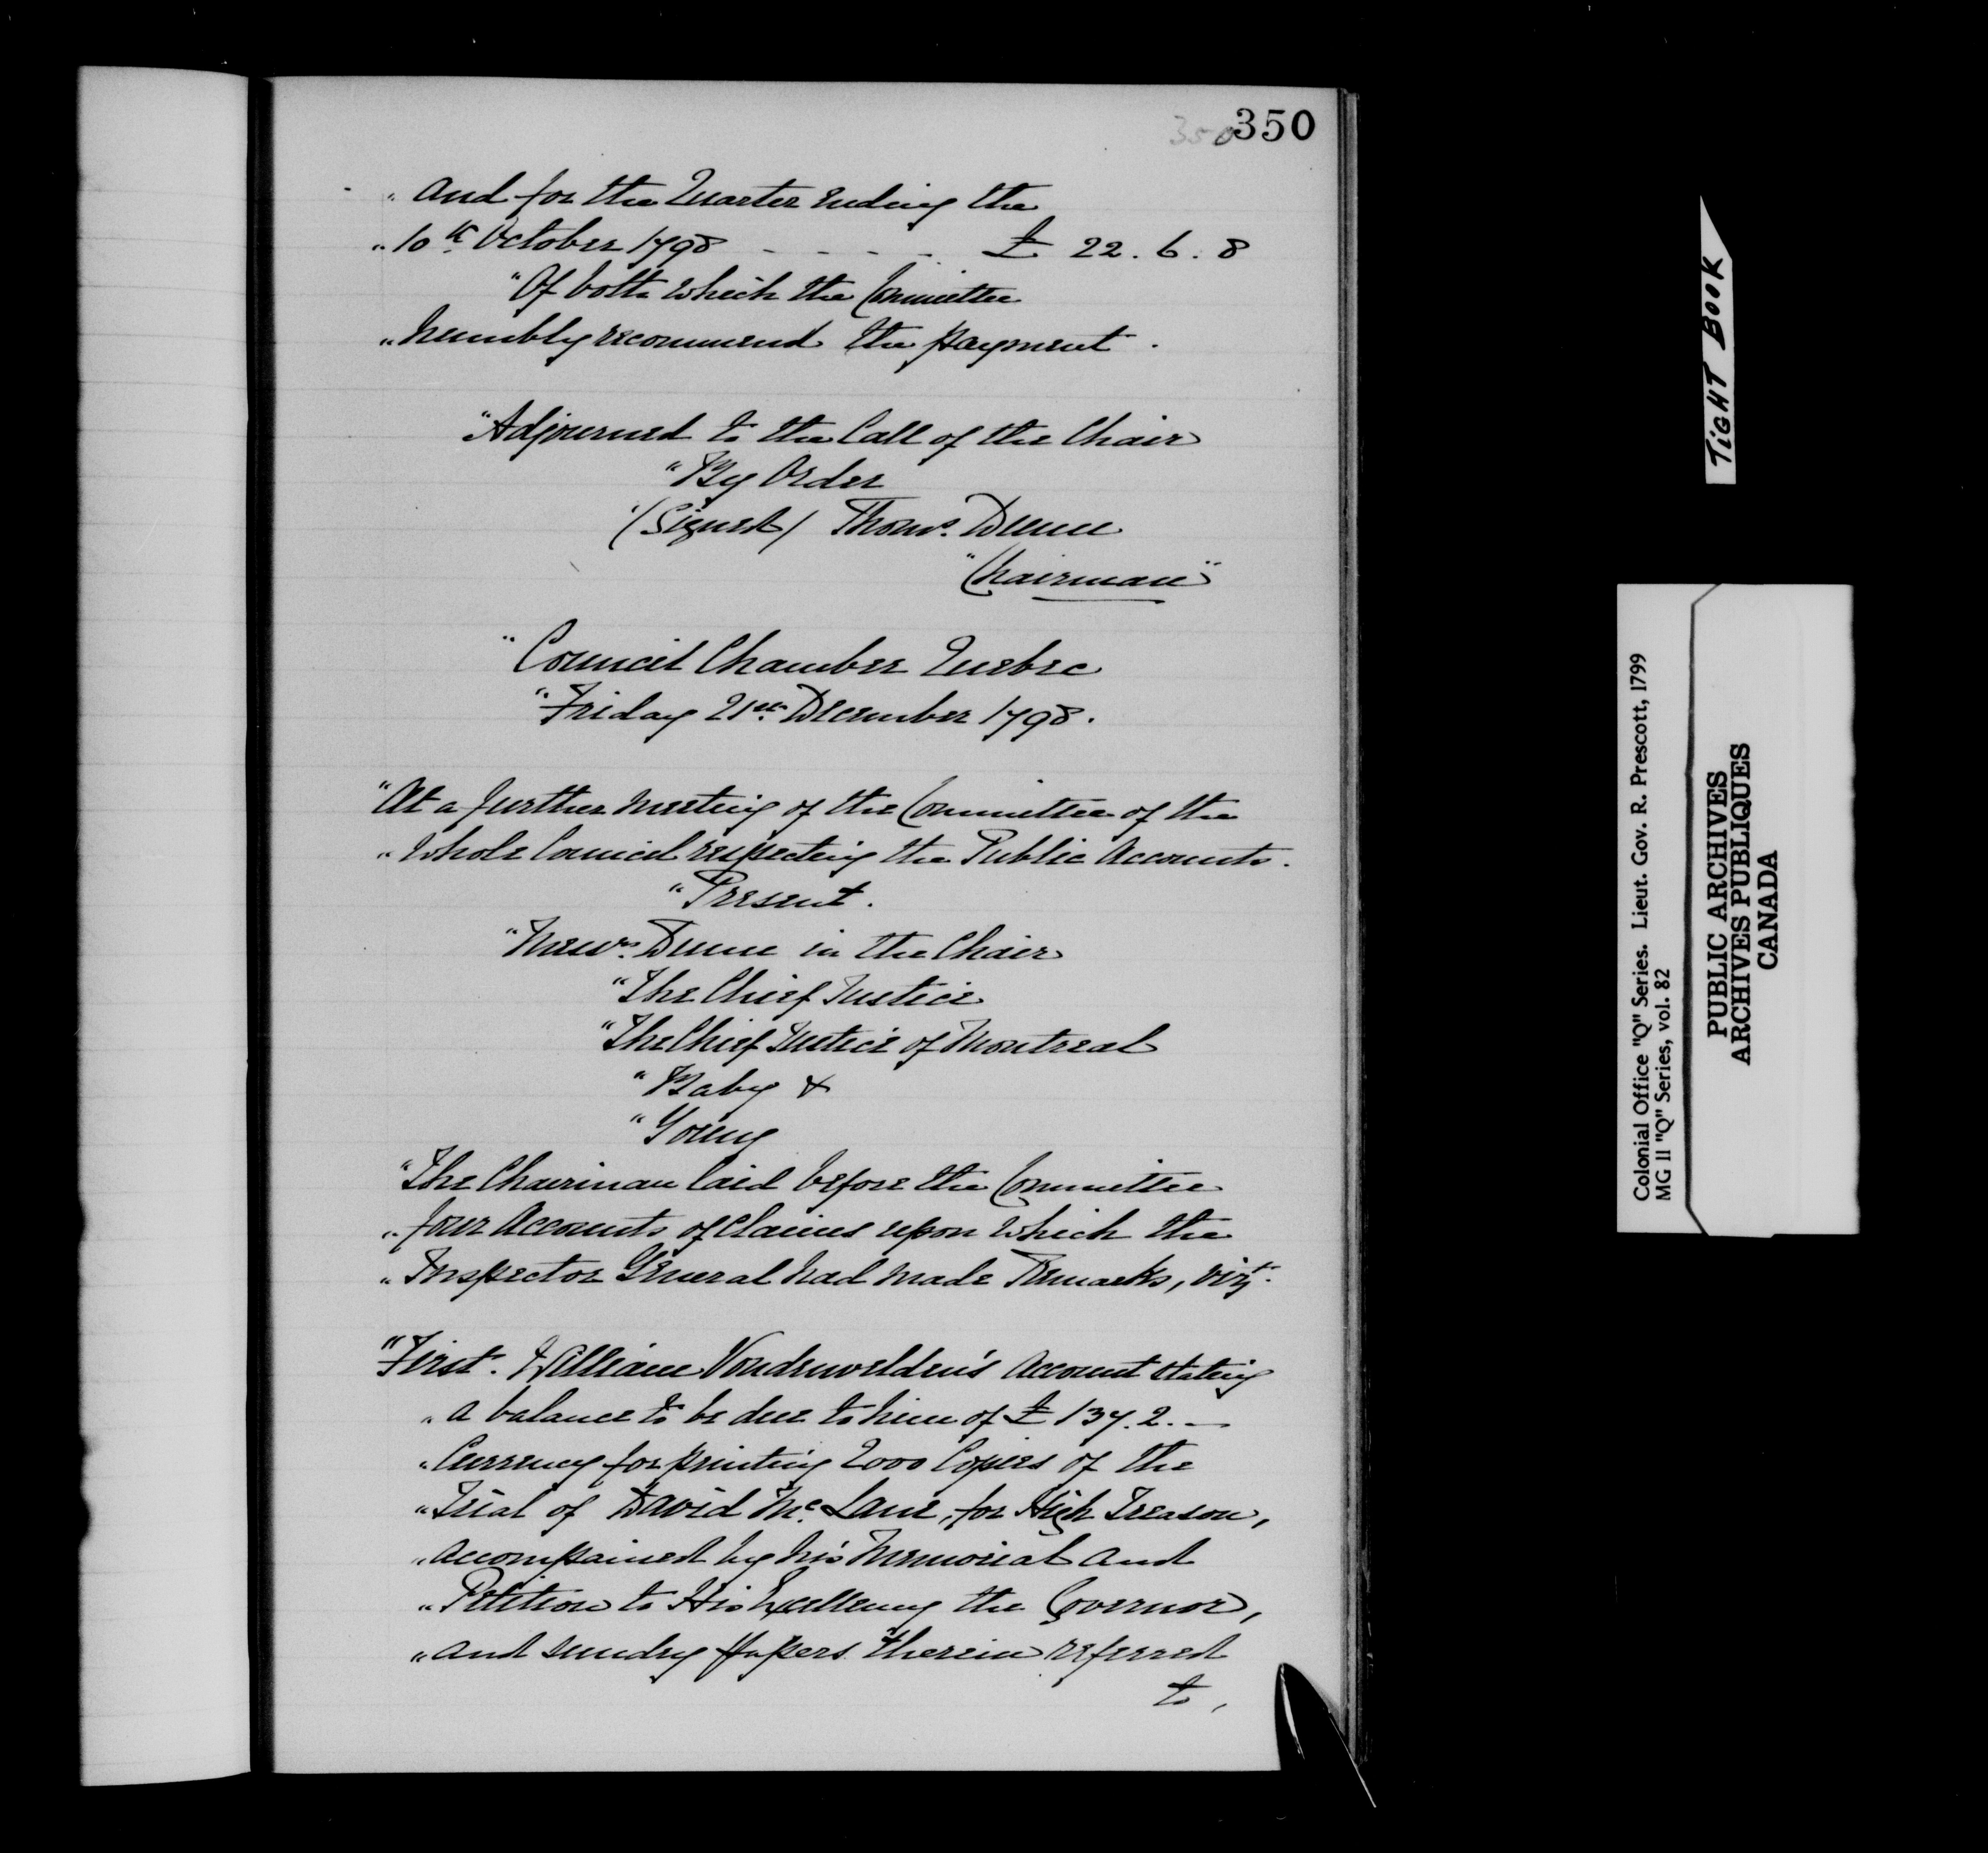 350 350
" And for the Quarter Ending the
" 10th October 1798 - - - - - £ 22. 6. 8
"Of both which the Committee
" humbly recommend the payment.
"Adjourned to the Call of the Chair
"By Order
"(Signed) Thoms. Dunn
"Chairman"
"Council Chamber Quebec
"Friday 21st December 1798.
"At a further Meeting of the Committee of the
" Whole Council respecting the Public Accounts.
"Present.
"Messrs. Dunn in the Chair
"The Chief Justice
"The Chief Justice of Montreal
"Baby &
"Young
"The Chairman laid before the Committee
" four Accounts of Claims upon which the
" Inspector General had made Remarks, vizt.
"First. William Vondenvelden's Account stating
" a balance to be due to him of £ 137. 2. —
" Currency for printing 2000 Copies of the
" Trial of David Mc. Lane, for High Treason,
" accompained by his Memorial and
" Petition to His Excellency the Governor,
" and sundry papers therein referred
to,
TIGHT BOOK
Colonial Office "Q" Series. Lieut. Gov. R. Prescott, 1799
MG 11 "Q" Series, vol. 82
PUBLIC ARCHIVES
ARCHIVES PUBLIQUES
CANADA